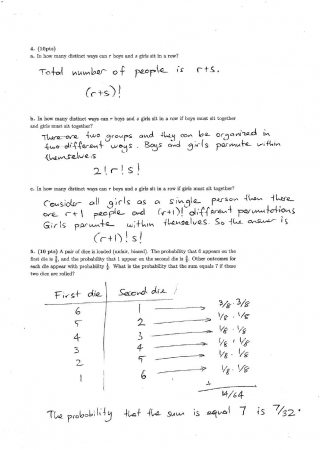 4. (10pts)
a. In how many distinct ways can r boys and s girls sit in a row?
Total number of people is r+s.
(r+s)!
b. In how many distinct ways can r boys and s girls sit in a row if boys must sit together
and girls must sit together?
There are two groups and they can be organized in
two different ways. Boys and girls permute within
themselves
2! r! s!
c. In how many distinct ways can r boys and s girls sit in a row if girls must sit together?
Consider all girls as a single person then there
are r+1 people and (r+1)! different permutations
Girls permute within themselves. So the answer is
(r+1)! s!
5. (10 pts) A pair of dice is loaded (unfair, biased). The probability that 6 appears on the
first die is 3/8, and the probability that 1 appear on the second die is 3/8. Other outcomes for
each die appear with probability 1/8. What is the probability that the sum equals 7 if these
two dice are rolled?
First die | Second die
6 | 1 → 3/8 · 3/8
5 | 2 → 1/8 · 1/8
4 | 3 → 1/8 · 1/8
3 | 4 → 1/8 · 1/8
2 | 5 → 1/8 · 1/8
1 | 6 → 1/8 · 1/8
+
14/64
The probability that the sum is equal 7 is 7/32.